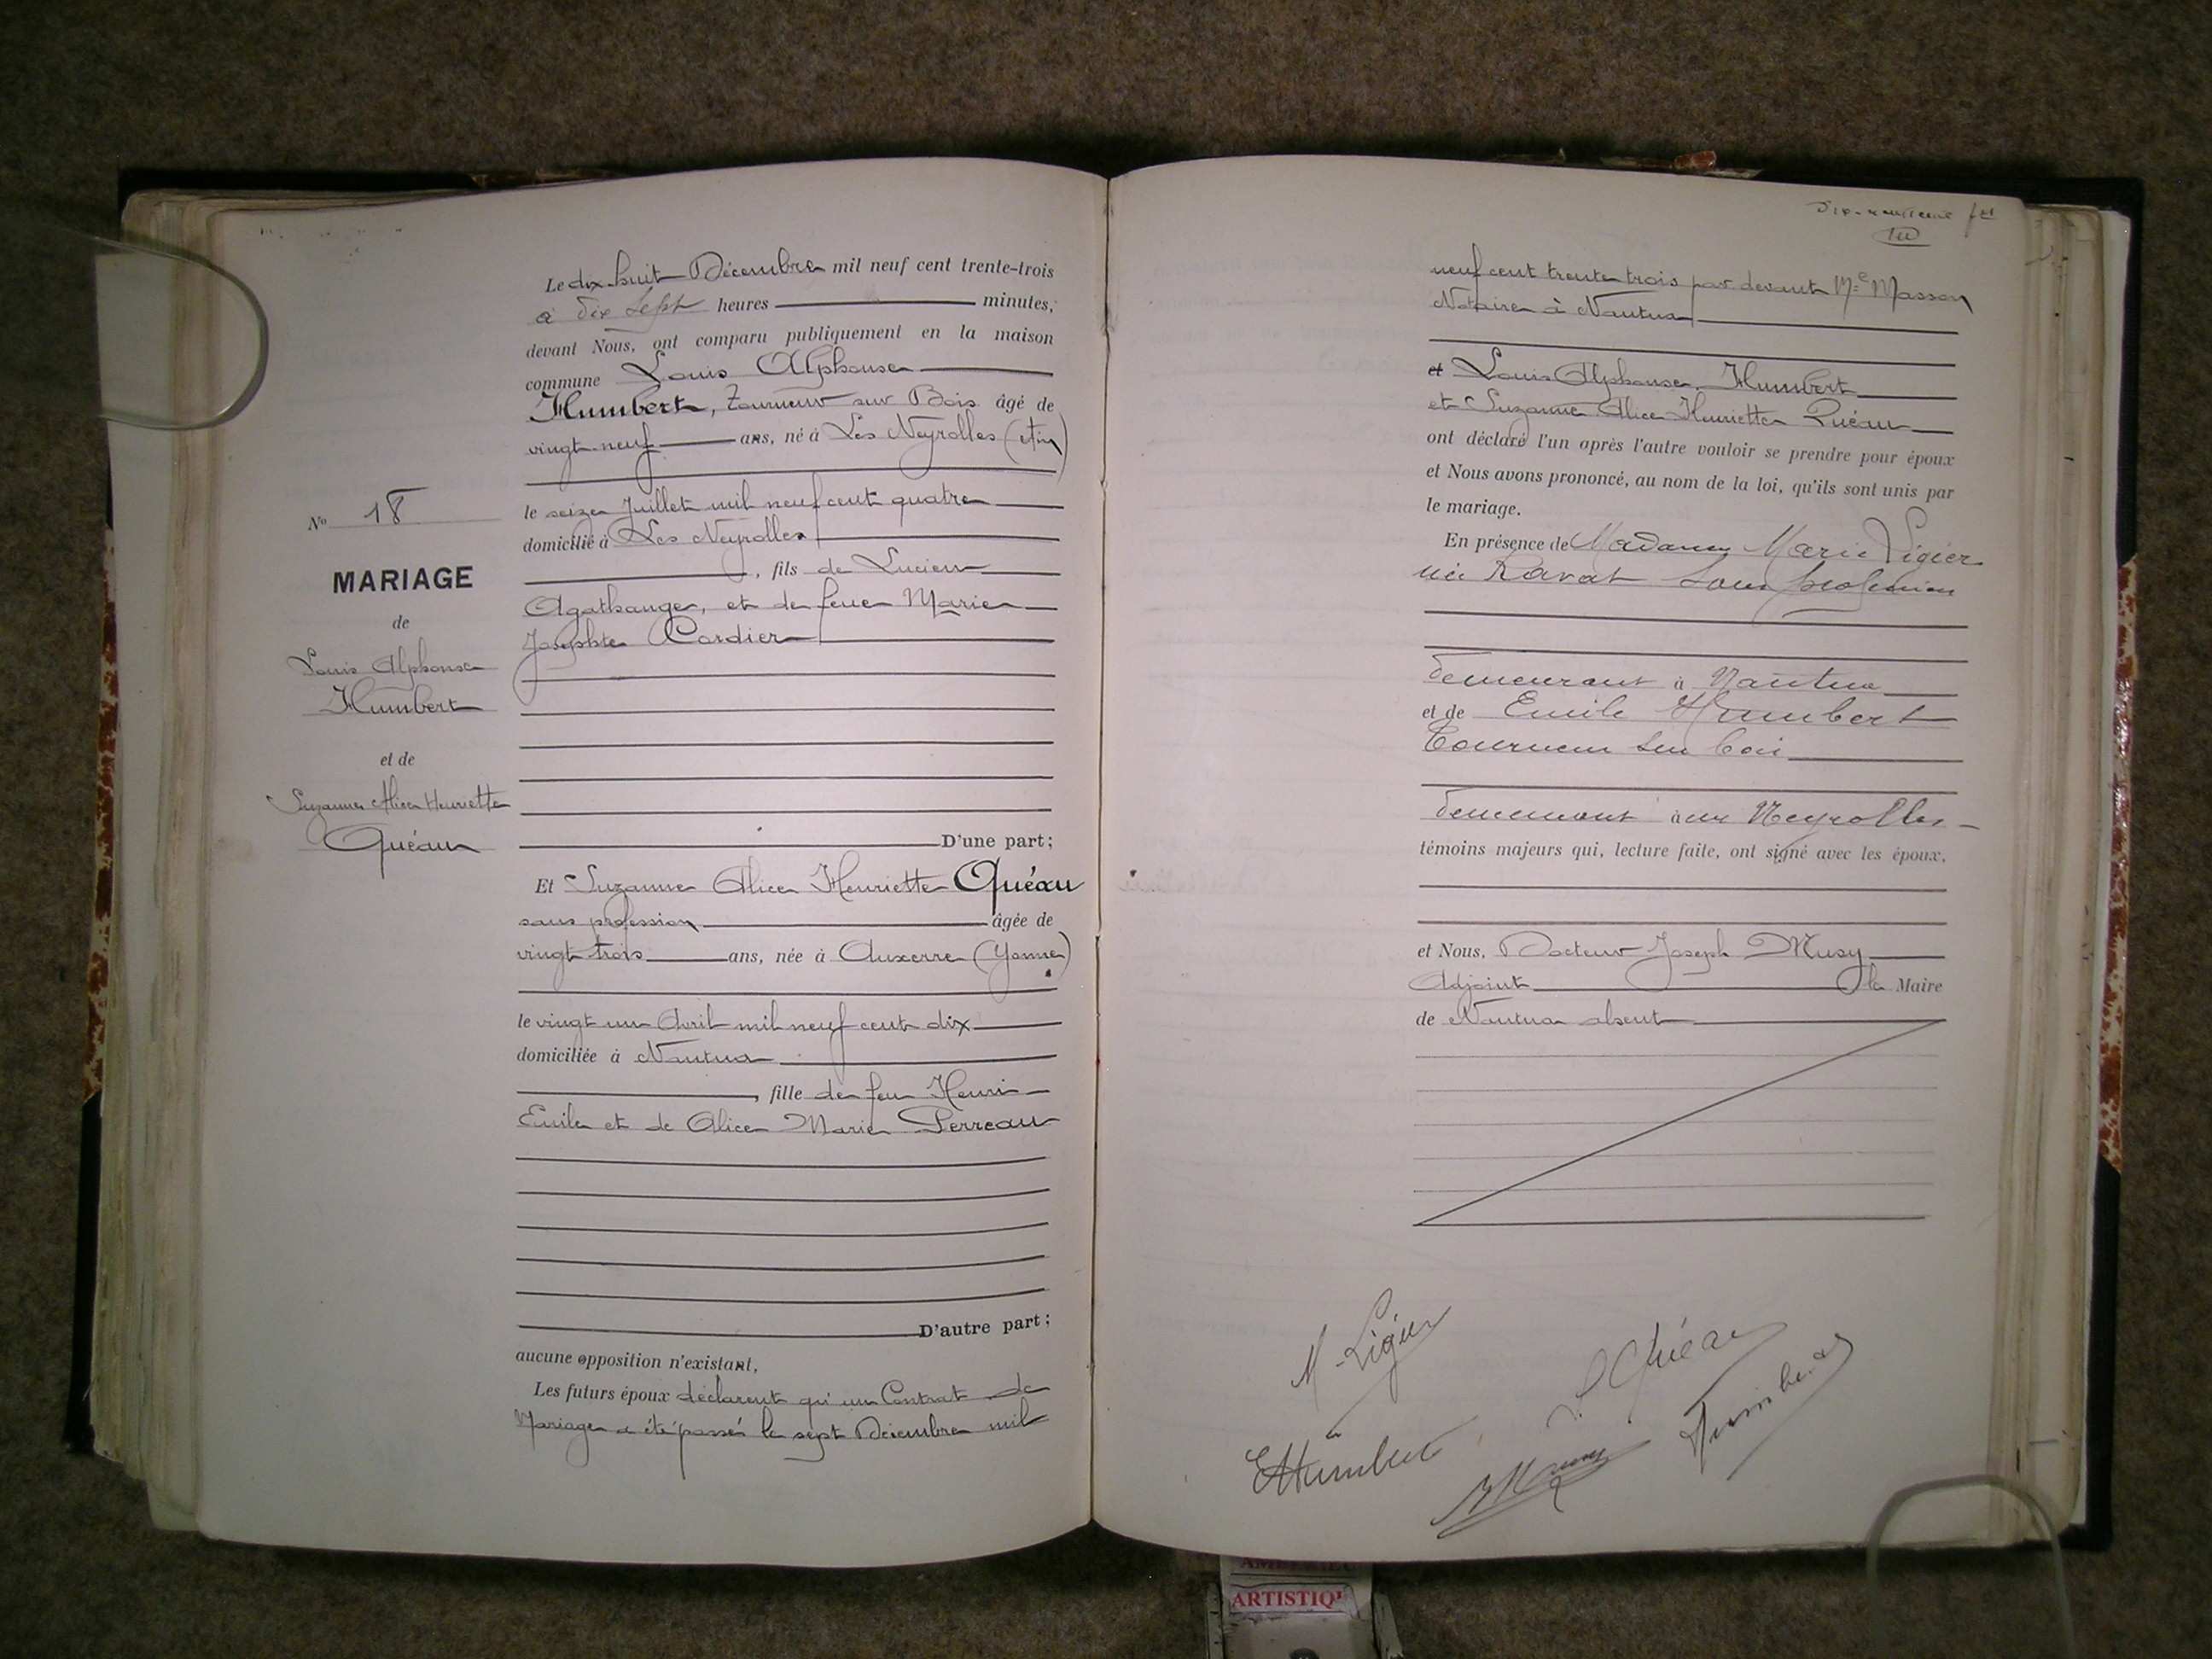 Le dix-huit Décembre mil neuf cent trente-trois
à dix sept heures minutes,
devant Nous, ont comparu publiquement en la maison
commune Louis Alphonse
Humbert, tourneur sur Bois âgé de
vingt-neuf ans, né à Les Neyrolles (Ain)
le seize Juillet mil neuf cent quatre
domicilié à Les Neyrolles
, fils de Lucien
Agathange, et de feue Marie
Josephte Cordier
D'une part;
No 18
MARIAGE
de
Louis Alphonse
Humbert
et de
Suzanne Alice Henriette
Quéau
Et Suzanne Alice Henriette Quéau
sans profession âgée de
vingt trois ans, née à Auxerre (Yonne)
le vingt un Avril mil neuf cent dix
domiciliée à Nantua
, fille de feu Henri
Emile et de Alice Marie Perreau
D'autre part;
aucune opposition n'existant,
Les futurs époux déclarent qu'un Contrat de
Mariage a été passé le sept Décembre mil
dix-neuvième
neuf cent trente trois par devant Me Masson
Notaire à Nantua
et Louis Alphonse Humbert
et Suzanne Alice Henriette Quéau
ont déclaré l'un après l'autre vouloir se prendre pour époux
et Nous avons prononcé, au nom de la loi, qu'ils sont unis par
le mariage.
En présence de Madame Marie Ligier
née Ravat sans profession
demeurant à Nantua
et de Emile Humbert
tourneur sur bois
demeurant aux Neyrolles
témoins majeurs qui, lecture faite, ont signé avec les époux,
et Nous, Docteur Joseph Musy
Adjoint le Maire
de Nantua absent
M. Ligier
S. Quéau
E Humbert
Humbert
ARTISTIQ